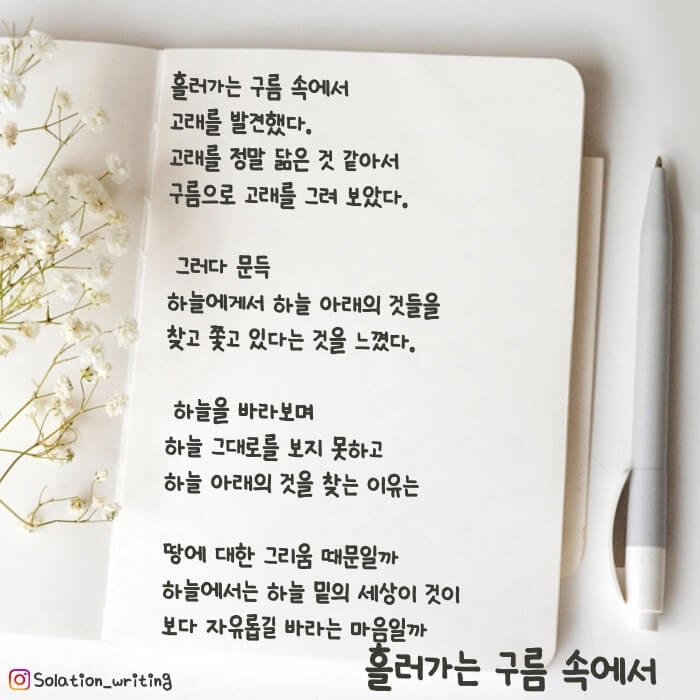 흘러가는 구름 속에서
고래를 발견했다.
고래를 정말 닮은 것 같아서
구름으로 고래를 그려 보았다.
그러다 문득
하늘에게서 하늘 아래의 것들을
찾고 쫓고 있다는 것을 느꼈다.
하늘을 바라보며
하늘 그대로를 보지 못하고
하늘 아래의 것을 찾는 이유는
땅에 대한 그리움 때문일까
하늘에서는 하늘 밑의 세상이 것이
보다 자유롭길 바라는 마음일까
흘러가는 구름 속에서
Solation_writing